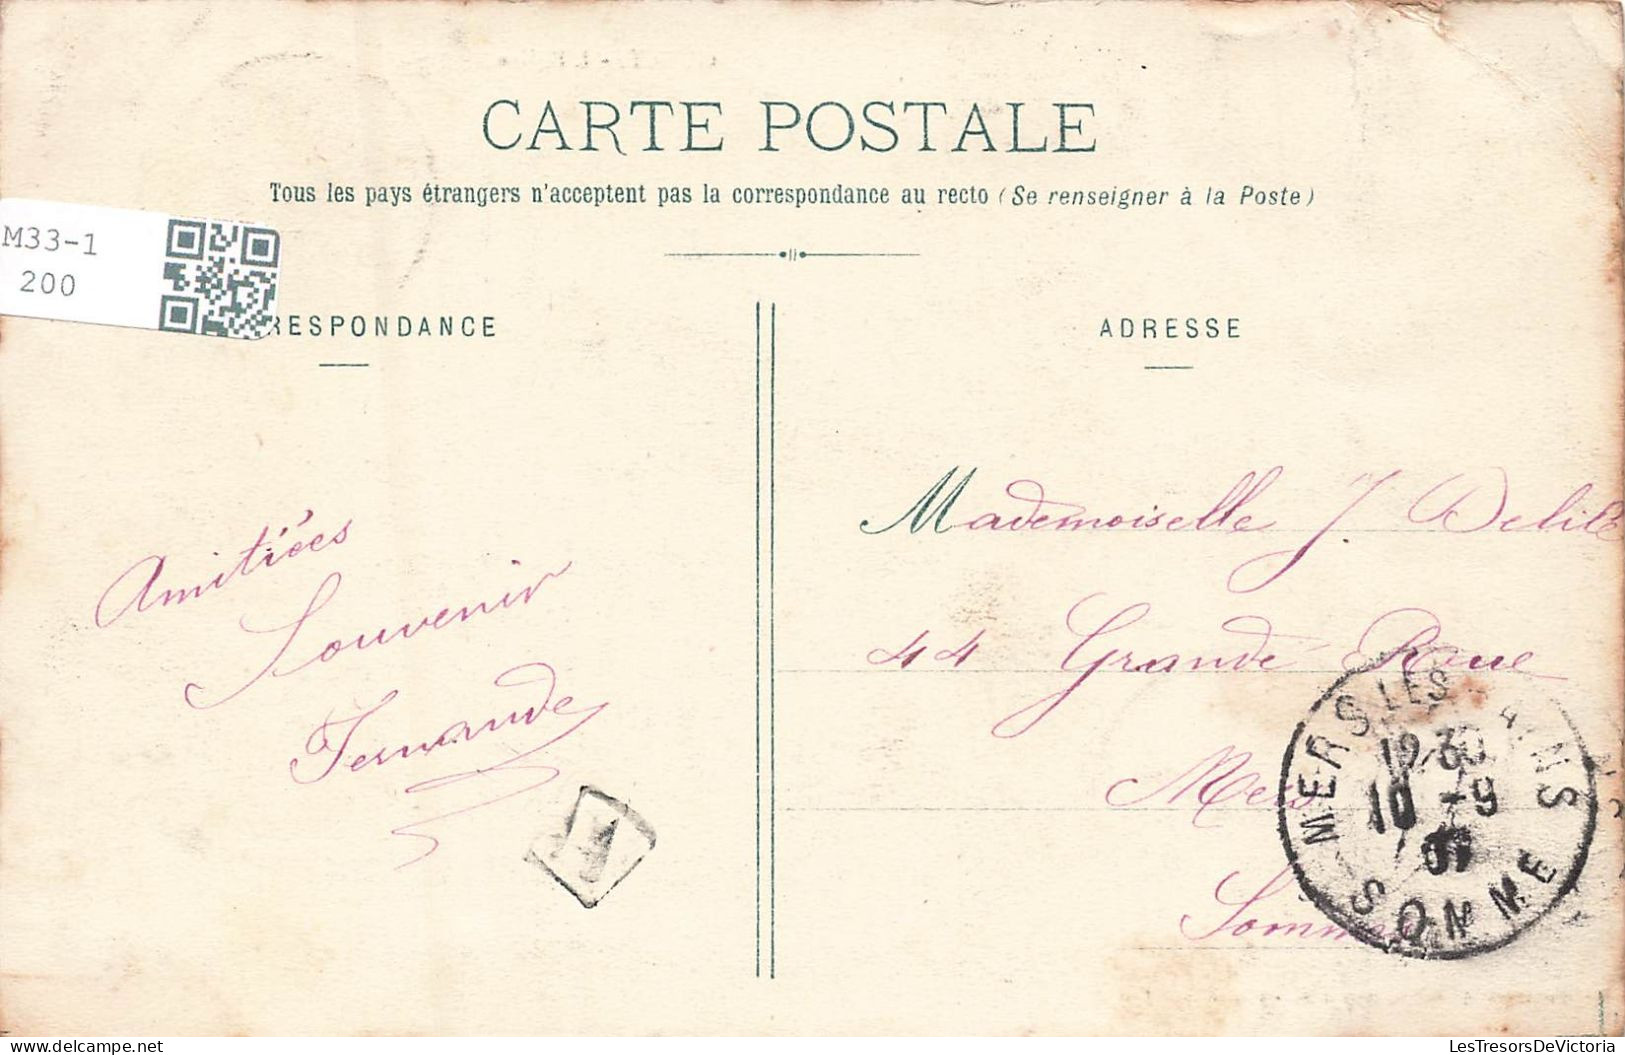 CARTE POSTALE
Tous les pays étrangers n'acceptent pas la correspondance au recto (Se renseigner à la Poste)
M33-1
200
RESPONDANCE
ADRESSE
Amitiées
Souvenir
Fernande
Mademoiselle J. Delile
44 Grande Rue
Mers
Somme
MERS LES BAINS
1930
10 -9
07
SOMME
LesTresorsDeVictoria
www.delcampe.net